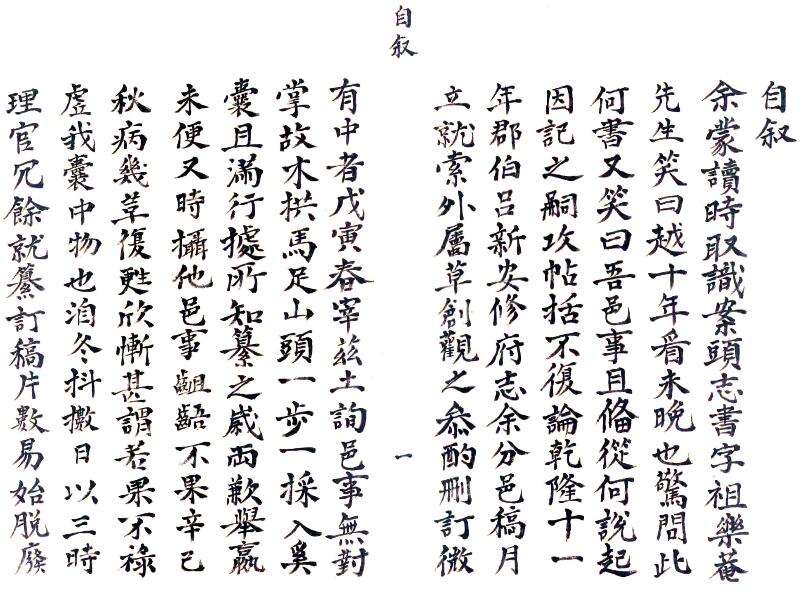 自叙
余蒙讀時取識案頭志書字祖樂菴
先生笑曰越十年看未晚也驚問此
何書又笑曰吾邑事且俻從何說起
因記之嗣攻帖括不復論乾隆十一
年郡伯呂新安修府志余分邑稿月
立就索外屬草創觀之叅酌刪訂微
自叙
一
有中者戊寅春宰茲土詢邑事無對
掌故木拱馬足山頭一步一採入奚
囊且滿行擄所知纂之嵗兩歉舉羸
未便又時攝他邑事齟齬不果辛巳
秋病幾革復甦欣慚甚謂若果不祿
虛我囊中物也洎冬抖擻日以三時
理官冗餘就纂訂稿片數易始脫廢